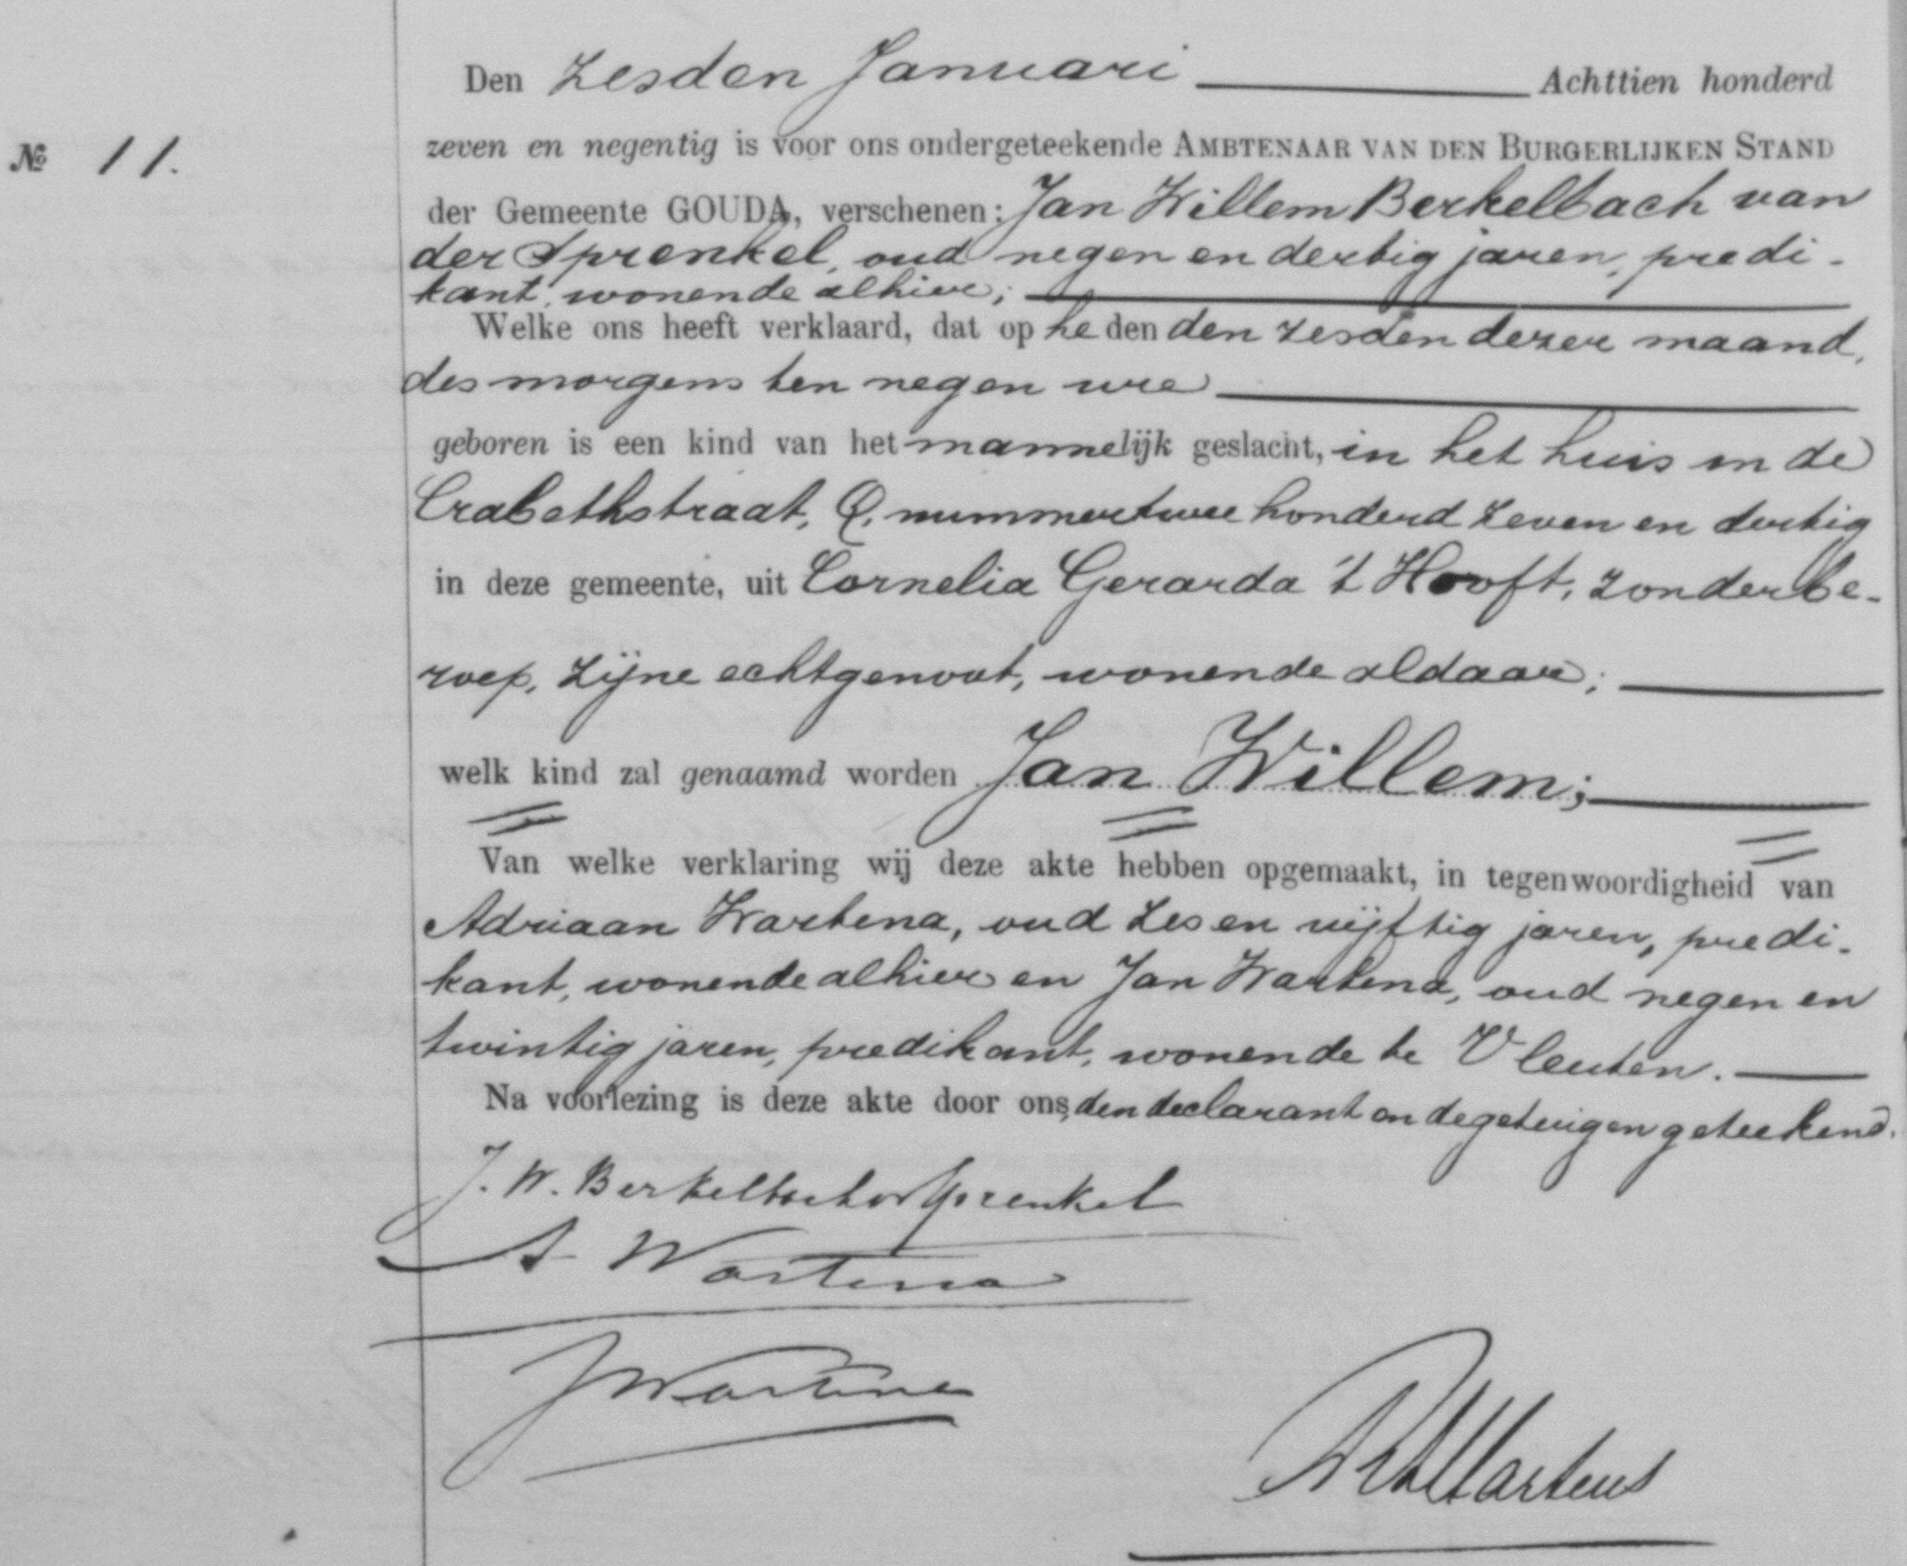 Den zesden Januari Achttien honderd
№ 11.
zeven en negentig is voor ons ondergeteekende AMBTENAAR VAN DEN BURGERLIJKEN STAND
der Gemeente GOUDA, verschenen: Jan Willem Berkelbach van
der Sprenkel, oud negen en dertig jaren, predi-
kant, wonende alhier;
Welke ons heeft verklaard, dat op heden den zesden dezer maand,
des morgens ten negen ure
geboren is een kind van het mannelijk geslacht, in het huis in de
Crabethstraat, Q, nummer twee honderd zeven en dertig
in deze gemeente, uit Cornelia Gerarda 't Hooft, zonder be-
roep, zijne echtgenoot, wonende aldaar;
welk kind zal genaamd worden Jan Willem;
Van welke verklaring wij deze akte hebben opgemaakt, in tegenwoordigheid van
Adriaan Wartena, oud zes en vijftig jaren, predi-
kant, wonende alhier en Jan Wartena, oud negen en
twintig jaren, predikant, wonende te Vleuten.
Na voorlezing is deze akte door ons, den declarant en de getuigen geteekend.
J. W. Berkelbach vd Sprenkel
A Wartena
J Wartena
Martens